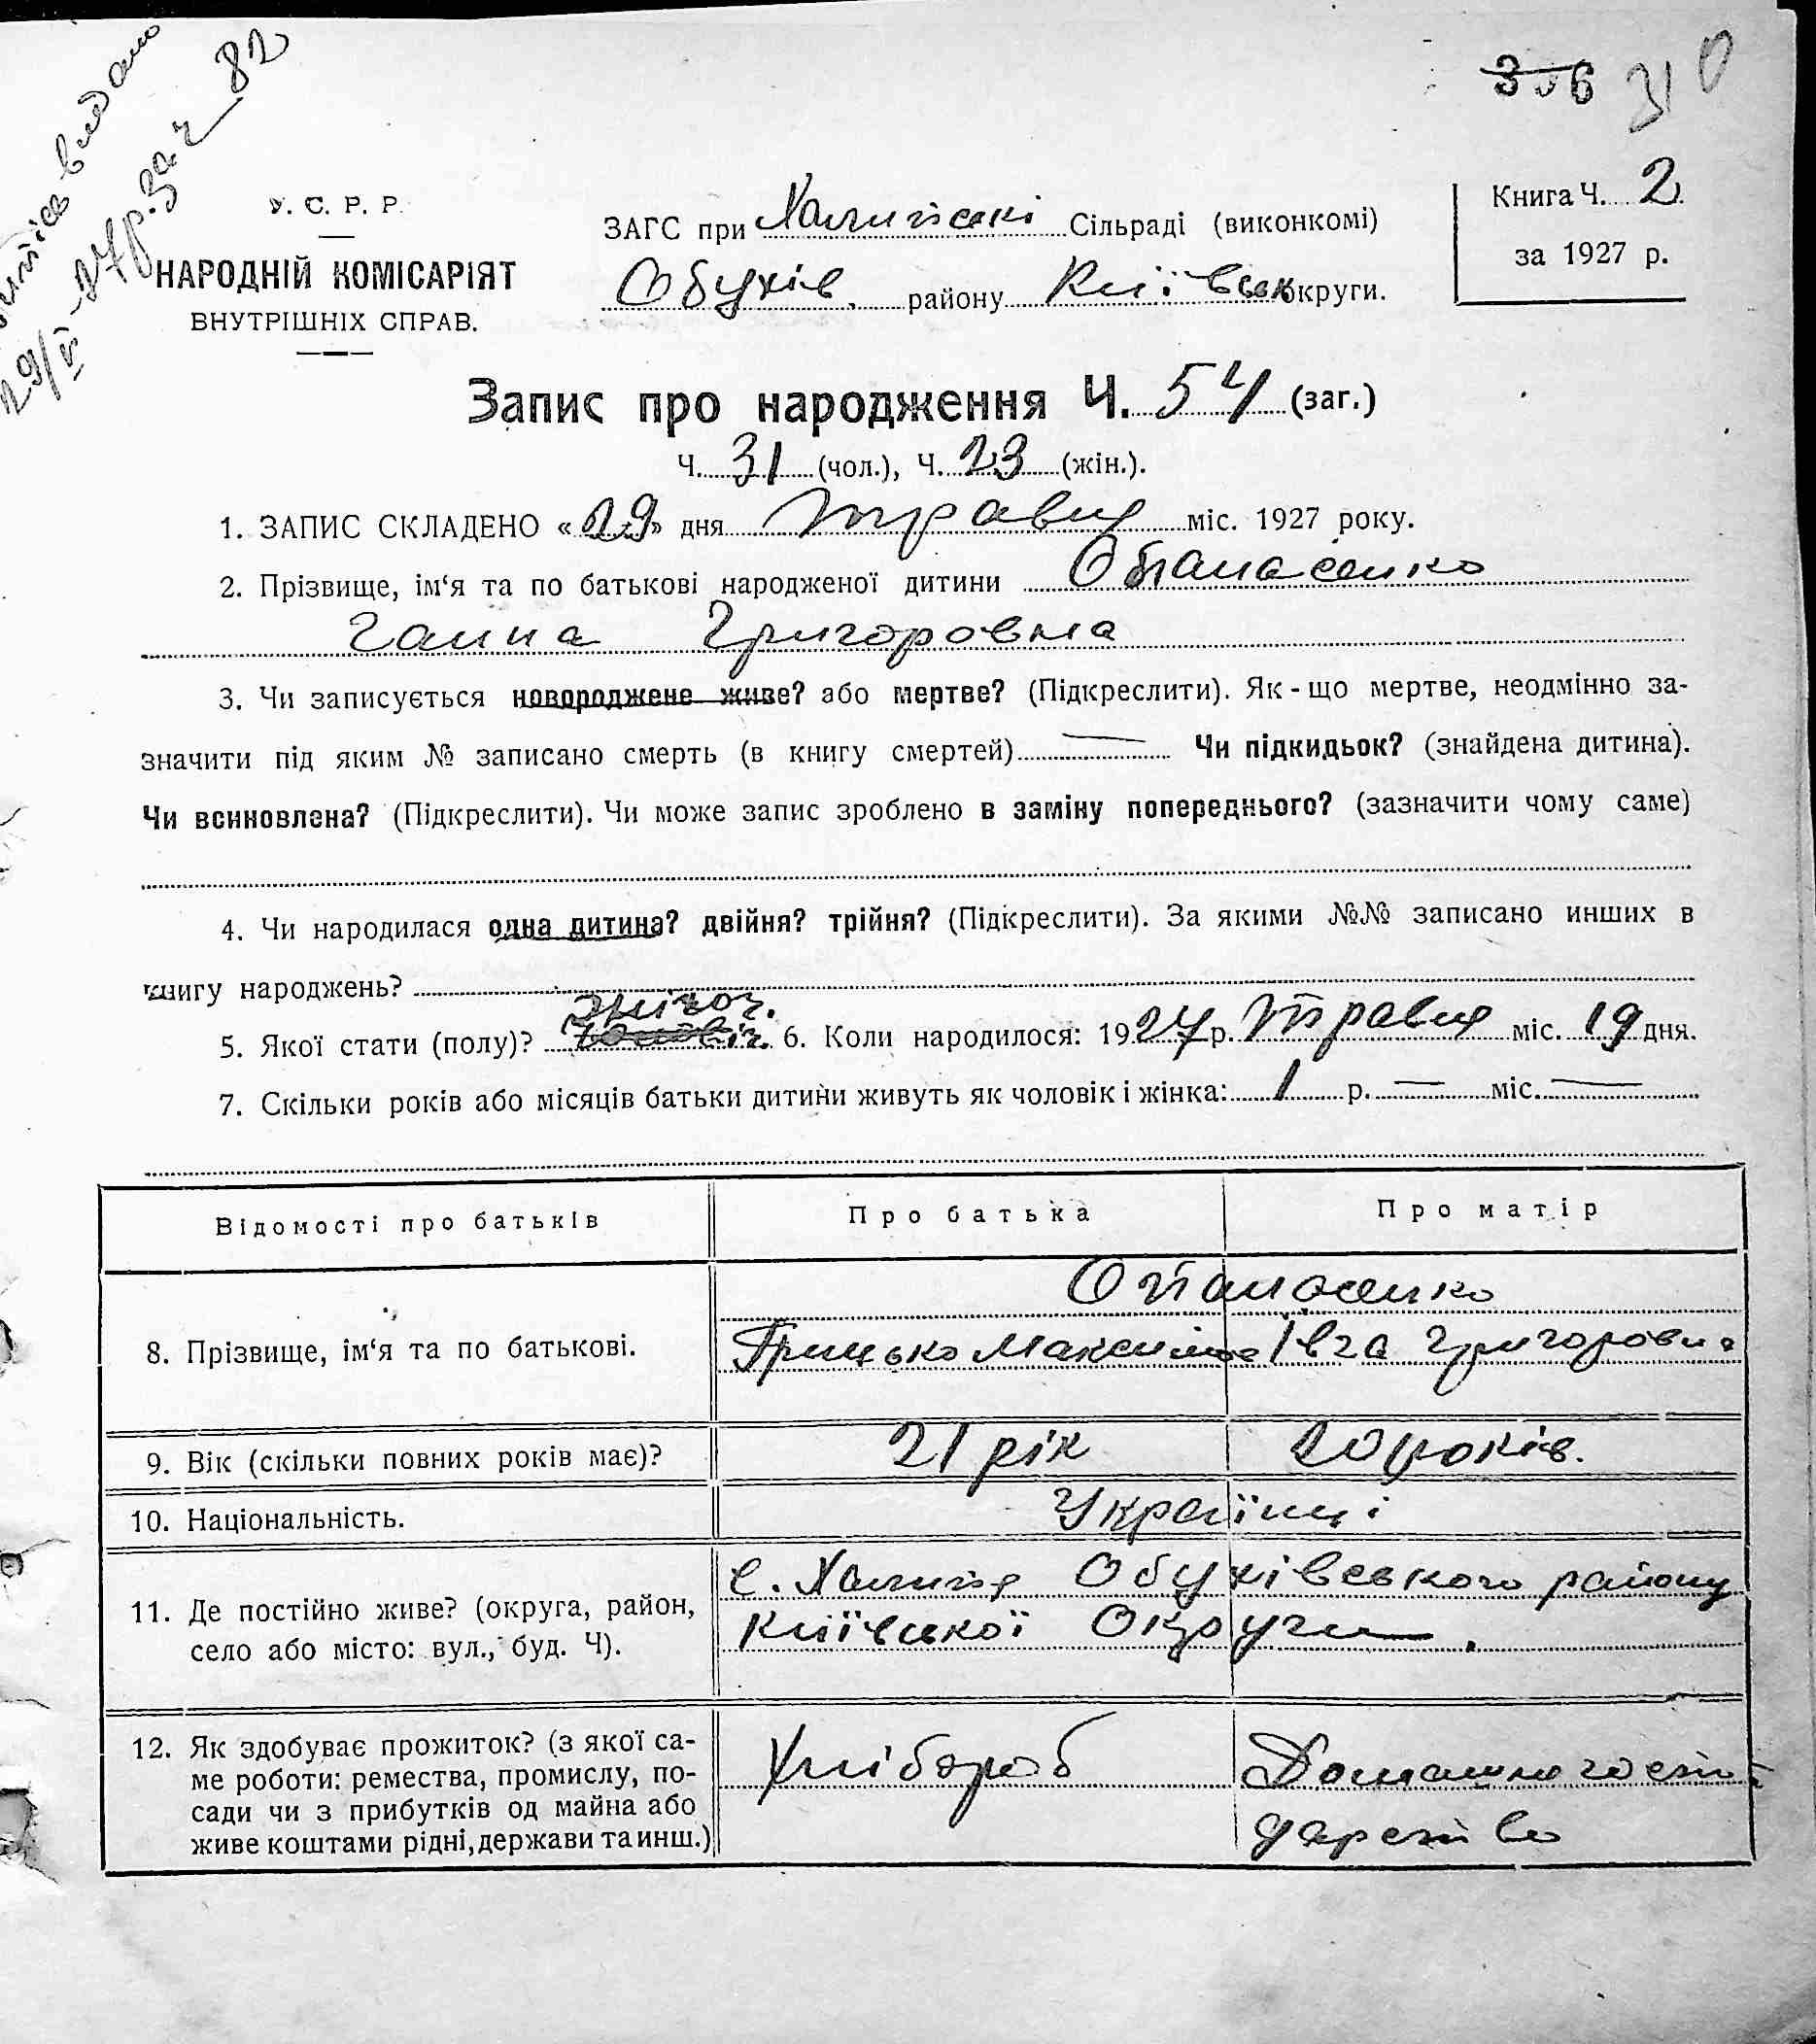 видано
29/VI-27р. за ч 82
306 310
У. С. Р. Р.
НАРОДНІЙ КОМІСАРІЯТ
ВНУТРІШНІХ СПРАВ.
ЗАГС при Халипські Сільраді (виконкомі)
Обухів. району Київськ округи.
Книга Ч. 2
за 1927 р.
Запис про народження Ч. 54 (заг.)
Ч. 31 (чол.), Ч. 23 (жін.).
1. ЗАПИС СКЛАДЕНО «29» дня травня міс. 1927 року.
2. Прізвище, ім‘я та по батькові народженої дитини Опанасенко
Ганна Григоровна
3. Чи записується новороджене живе? або мертве? (Підкреслити). Як-що мертве, неодмінно за-
значити під яким № записано смерть (в книгу смертей) — Чи підкидьок? (знайдена дитина).
Чи всиновлена? (Підкреслити). Чи може запис зроблено в заміну попереднього? (зазначити чому саме)
4. Чи народилася одна дитина? двійня? трійня? (Підкреслити). За якими №№ записано инших в
книгу народжень?
жіноч.
5. Якої стати (полу)? 6. Коли народилося: 1927 р. травня міс. 19 дня.
7. Скільки років або місяців батьки дитини живуть як чоловік і жінка: 1 р. — міс. —
Відомості про батьків Про батька Про матір
Опанасенко
8. Прізвище, ім‘я та по батькові. Грицько Максимов Івга Григоровна
9. Вік (скільки повних років має)? 21 рік 20 років.
10. Національність. Українці
11. Де постійно живе? (округа, район,
село або місто: вул., буд. Ч).
с. Халипья Обухівського району
Київської Округи.
12. Як здобуває прожиток? (з якої са-
ме роботи: ремества, промислу, по-
сади чи з прибутків од майна або
живе коштами рідні, держави та инш.)
Хлібороб
Домашнє госпо
дарство